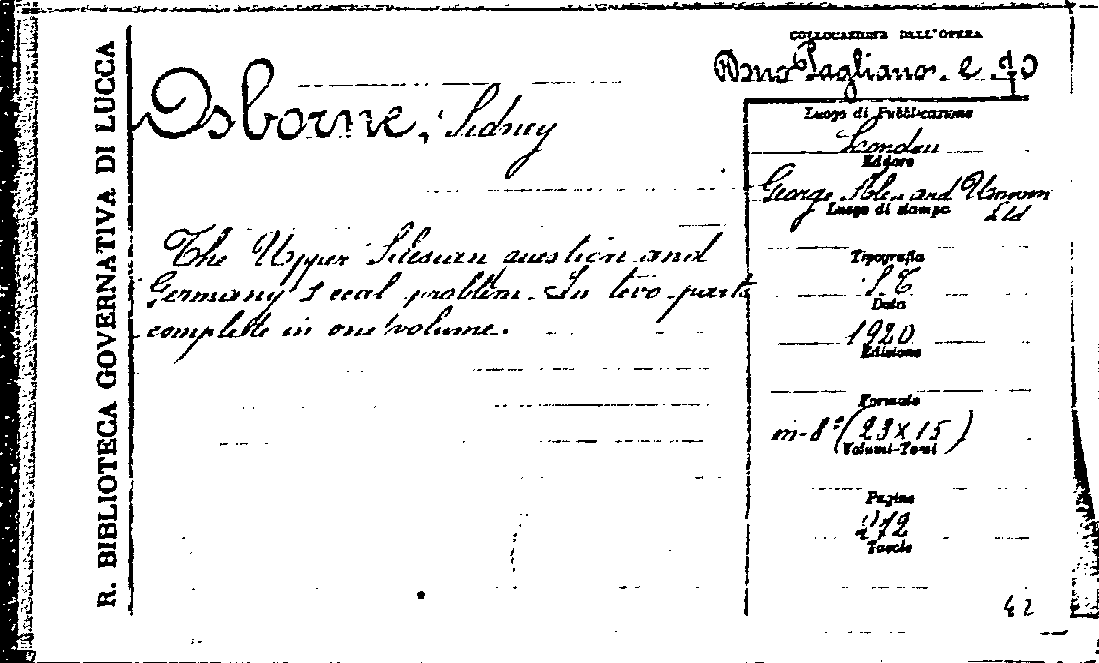 R. BIBLIOTECA GOVERNATIVA DI LUCCA
Osborne, Sidney
The Upper Silesian question and
Germany's coal problem. In two parts
complete in one volume.
COLLOCAZIONE DELL'OPERA
Pagliano. e.
Luogo di Pubblicazione
London
Editore
George Allen and Unwin
Ltd
Luogo di stampa
Tipografia
S. T.
Data
1920
Edizione
Formato
in-8° (23X15)
Volumi-Tomi
Pagine
272
Tavole
42